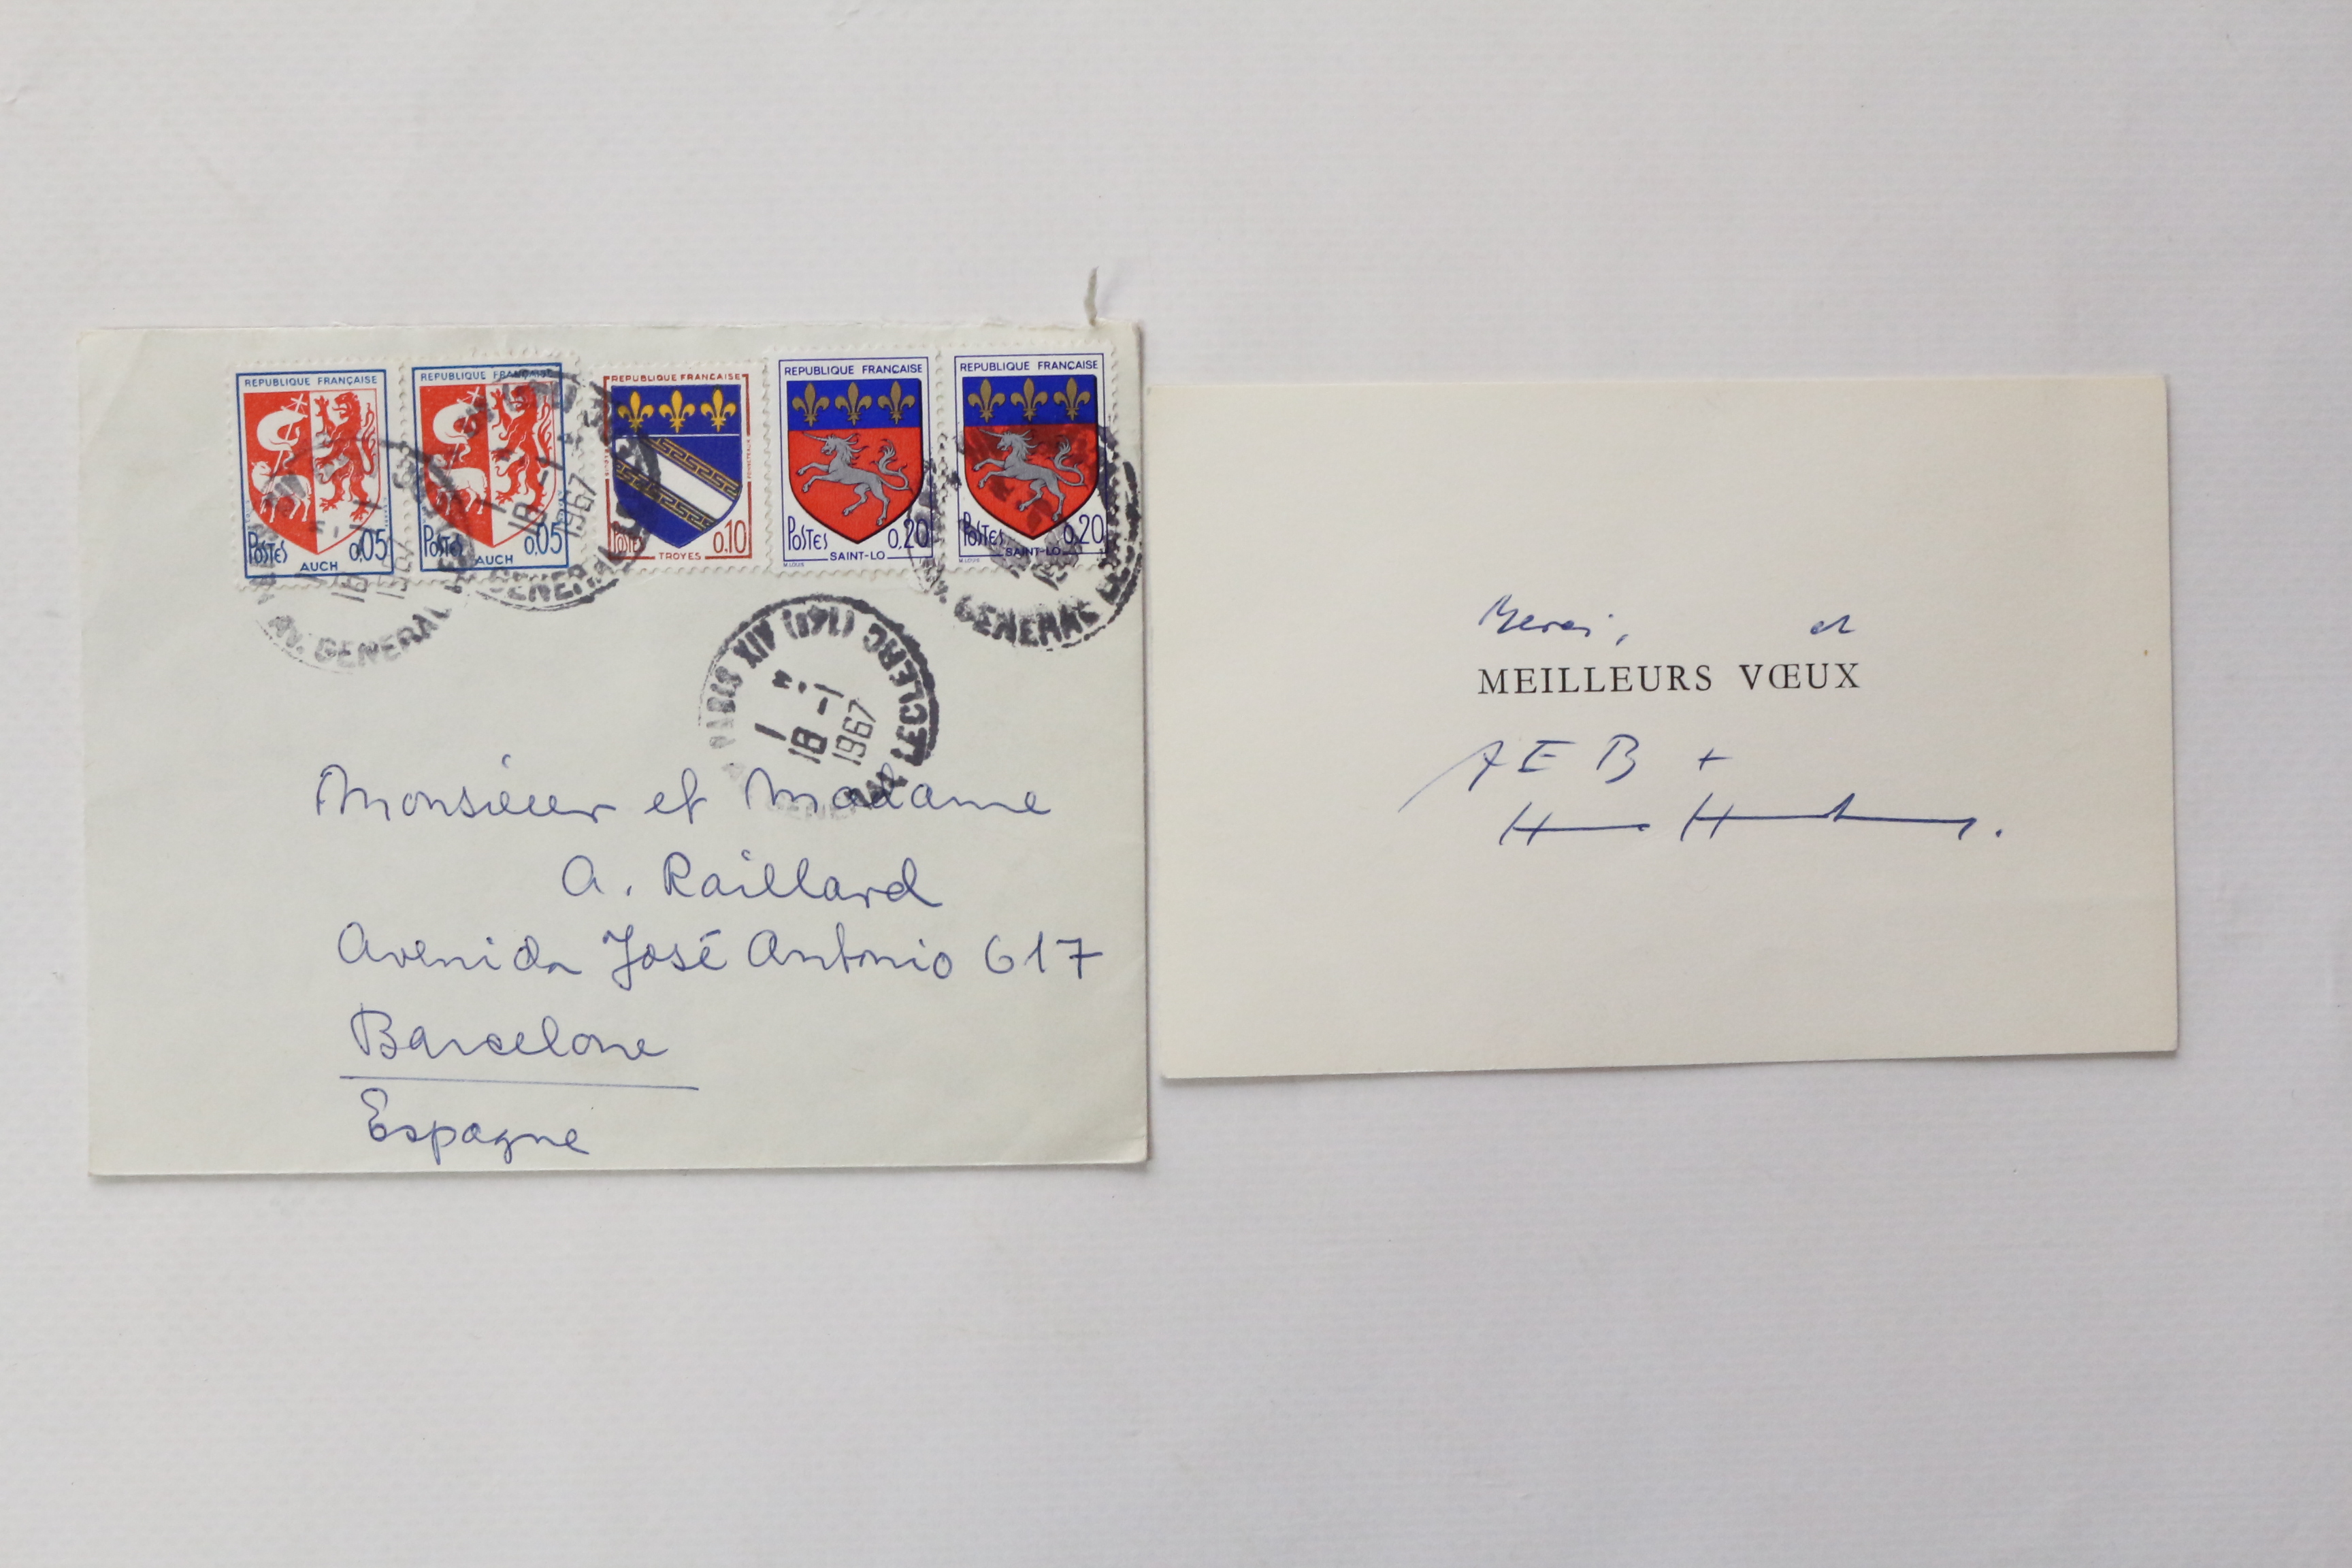 REPUBLIQUE FRANÇAISE
POSTES 0,05
AUCH
REPUBLIQUE FRANÇAISE
POSTES 0,05
AUCH
REPUBLIQUE FRANÇAISE
POSTES 0.10
TROYES
REPUBLIQUE FRANÇAISE
POSTES 0,20
SAINT-LO
M.LOUIS
REPUBLIQUE FRANÇAISE
POSTES 0,20
SAINT-LO
M.LOUIS
AV. GENERAL
18 -1
1967
GENERAL
AV. GENERAL
PARIS XIV (14e)
AV. GENERAL LECLERC
18 -1
1967
Monsieur et Madame
A. Raillard
Avenida José Antonio 617
Barcelone
Espagne
Merci, et
MEILLEURS VŒUX
A E B +
H H